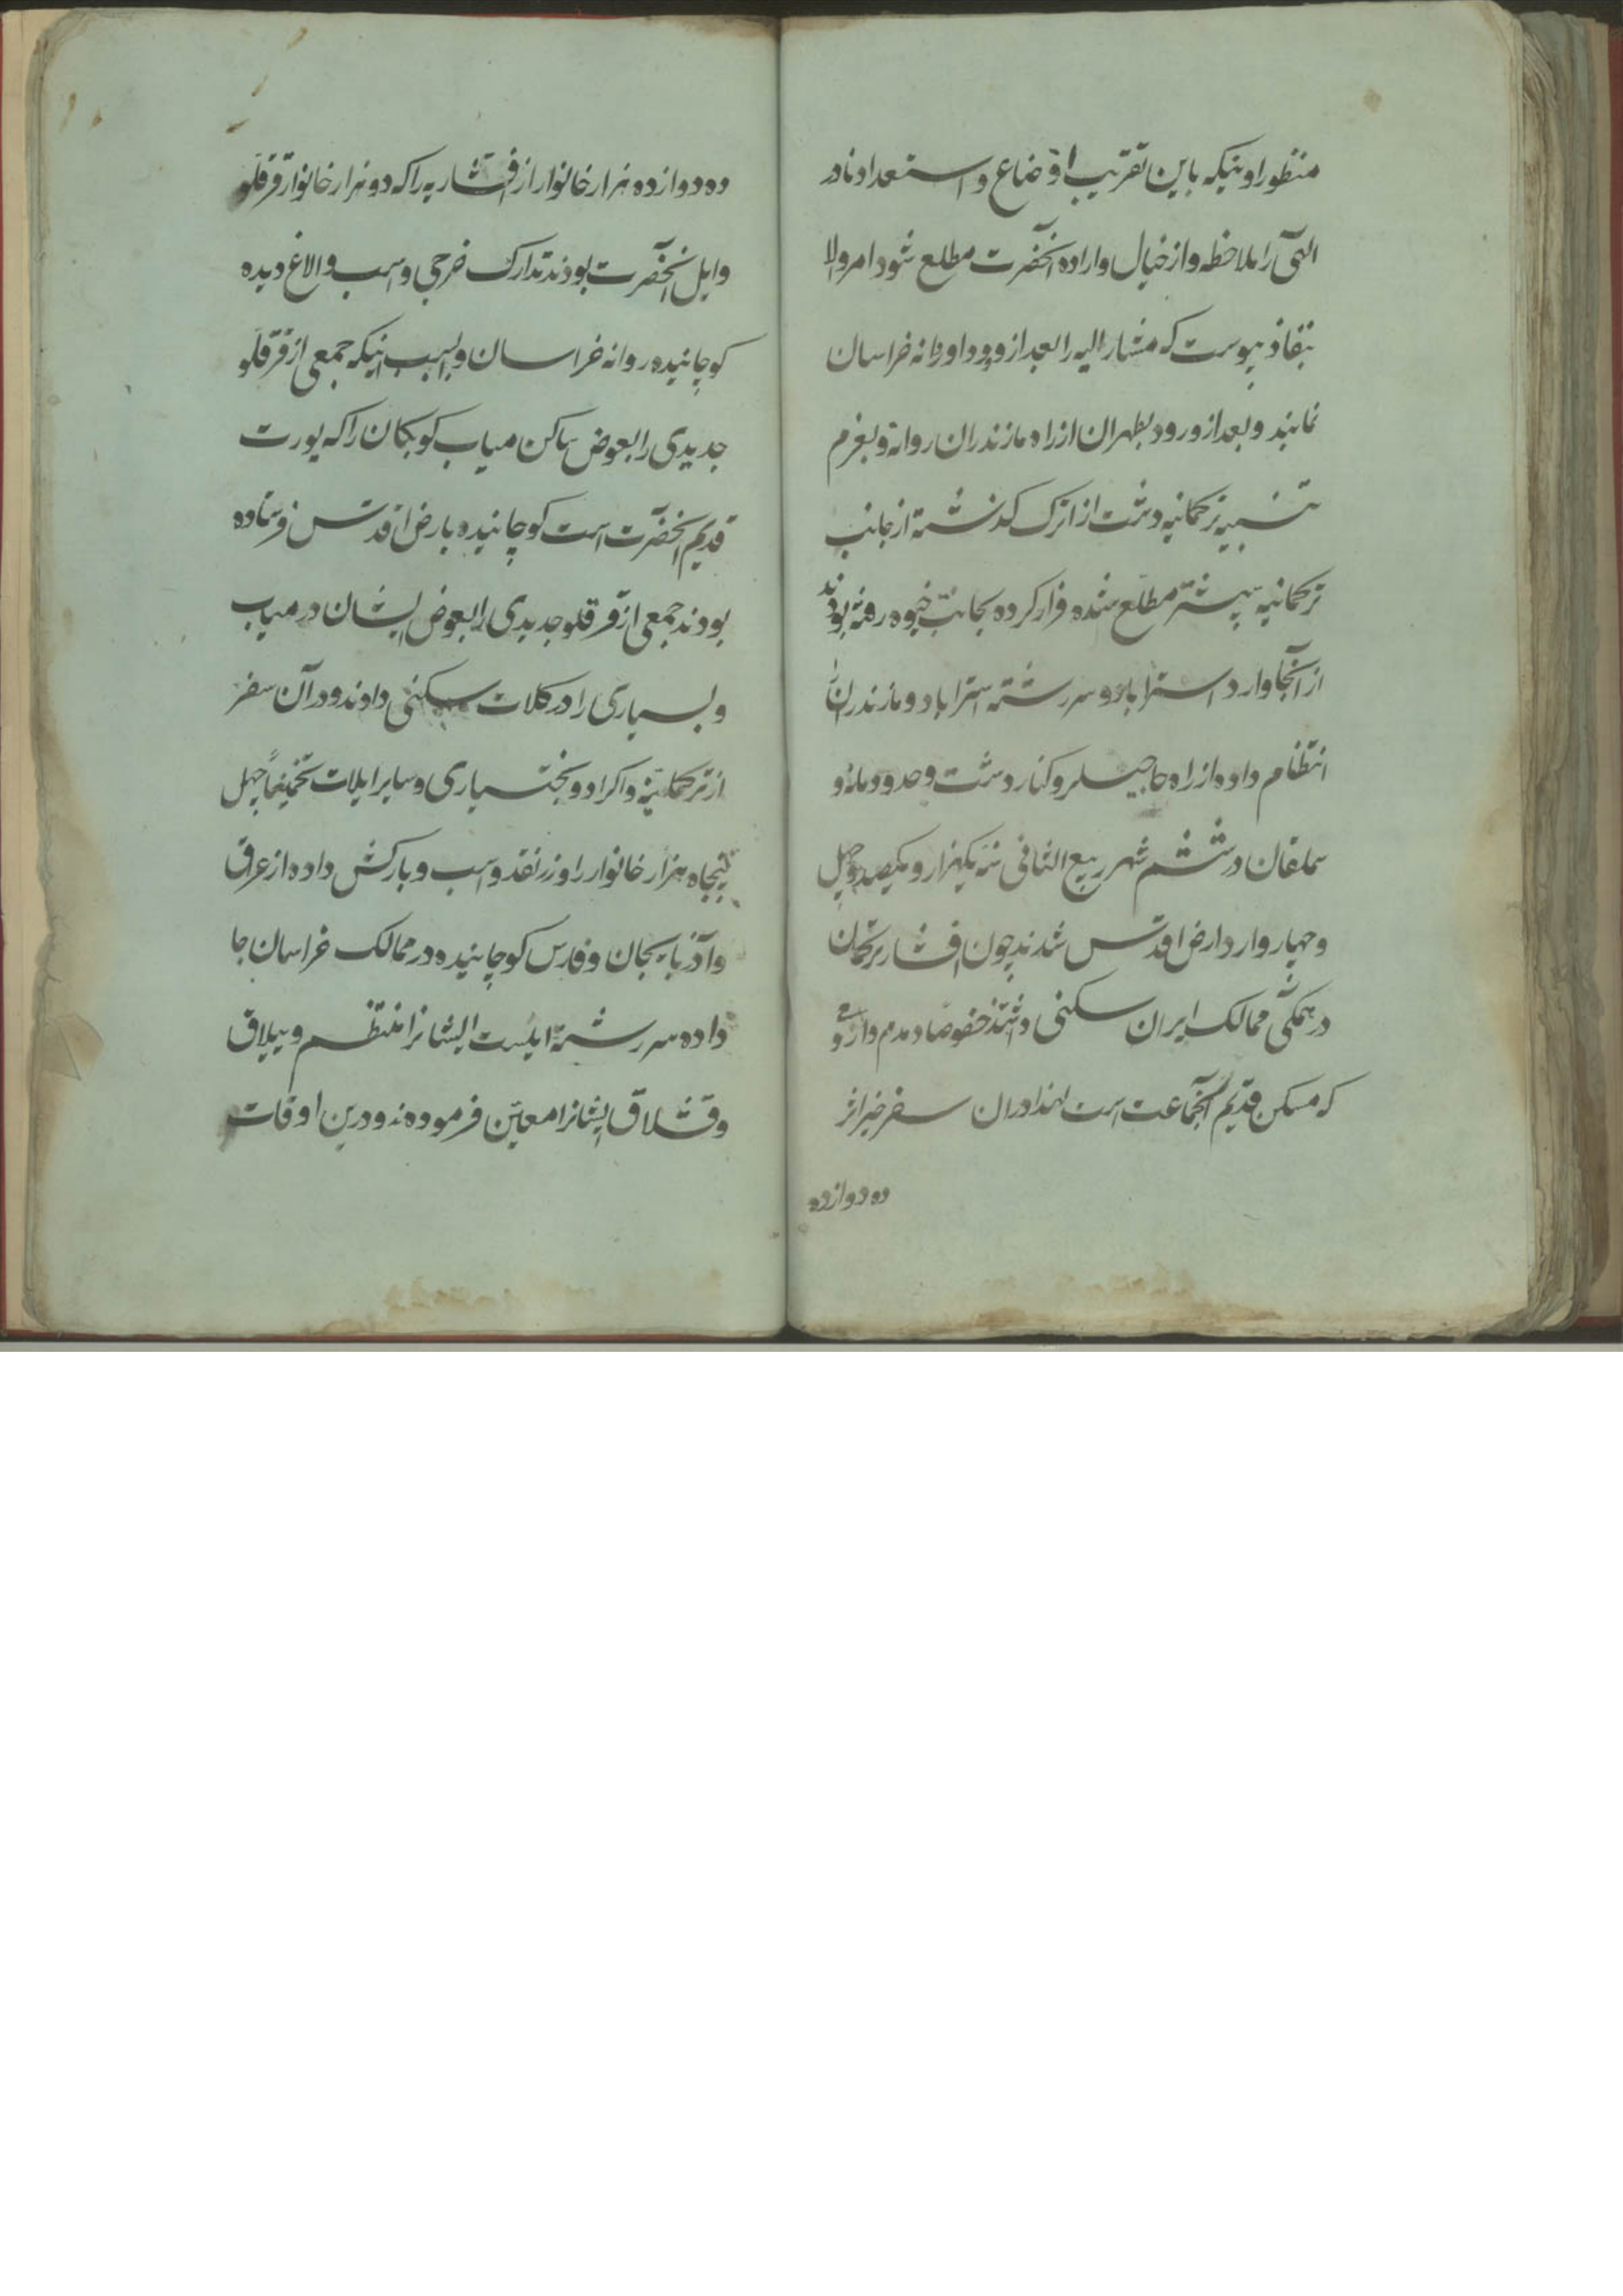 منظور او اینکه باین تقریب اوضاع و استعداد نادر
الهی را ملاحظه و از خیال و اراده آنحضرت مطلع شود امر والا
بنفاذ پیوست که مشار الیه را بعد از ورود او روانه خراسان
نمایند و بعد از ورود بطهران از راه مازندران روانه و بعزم
تنبیه ترکمانیه دشت از اترک گذشته از جانب
ترکمانیه پیشتر مطلع شده فرار کرده بجانب خیوه رفته بودند
از آنجا وارد استراباد و سررشته استراباد و مازندران را
انتظام داده از راه حاجیلر و کنار دشت و حدود مانه و
سملقان در ششم شهر ربیع الثانی سنه یکهزار و یکصد و چهل
و چهار وارد ارض اقدس شدند چون افشار ترکمان
در همگی ممالک ایران سکنی داشتند خصوصا
که مسکن قدیم آنجماعت است لهذا در ان سفر خیر اثر
ده دوازده
ده دوازده هزار خانوار از افشاریه را که دو هزار خانوار قرقلو
و ایل آنحضرت بودند تدارک خرجی و اسب و الاغ دیده
کوچانیده روانه خراسان و بسبب اینکه جمعی از قرقلو
جدیدی را بعوض ساکن میاب کوبکان را که یورت
قدیم آنحضرت است کوچانیده بارض اقدس فرستاده
بودند جمعی از قرقلو جدیدی را بعوض ایشان در میاب
و بسیاری را در کلات سکنی دادند و در آن سفر
از ترکمانیه و اکراد و بختیاری و سایر ایلات تخمیناً چهل
پنجاه هزار خانوار را و زر نقد و اسب و بارکش داده از عراق
و آذربایجان و فارس کوچانیده در ممالک خراسان جا
داده سررشته ایلیت ایشانرا منتظم و ییلاق
و قشلاق ایشانرا معیّن فرموده‌ند و درین اوقات